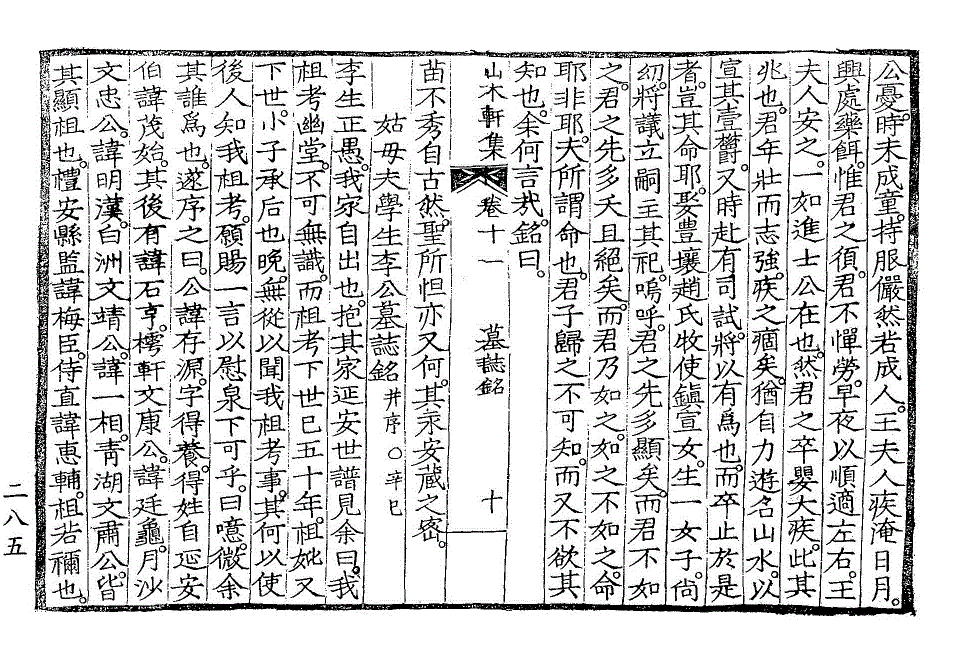 公憂。時未成童。持服。儼然若成人。王夫人疾淹日月。
興處藥餌。惟君之須。君不憚勞。早夜以順適左右。王
夫人安之。一如進士公在也。然君之卒。嬰大疾。此其
兆也。君年壯而志強。疾之痼矣。猶自力遊名山水。以
宣其壹鬱。又時赴有司試。將以有爲也。而卒止於是
者。豈其命耶。娶豊壤趙氏牧使鎭宣女。生一女子。尙
幼。將議立嗣主其祀。嗚呼。君之先多顯矣。而君不如
之。君之先多夭且絕矣。而君乃如之。如之不如之。命
耶非耶。夫所謂命也。君子歸之不可知。而又不欲其
知也。余何言哉。銘曰。
山木軒集 卷十一 墓誌銘 十
苗不秀自古然。聖所怛亦又何。其永安藏之密。
姑母夫學生李公墓誌銘 并序○辛巳
李生正愚。我家自出也。抱其家延安世譜見余曰。我
祖考幽堂。不可無識。而祖考下世已五十年。祖妣又
下世。小子承后也晚。無從以聞我祖考事。其何以使
後人知我祖考。願賜一言以慰泉下可乎。曰。噫。微余
其誰爲也。遂序之曰。公諱存源。字得養。得姓自延安
伯諱茂始。其後有諱石亨。樗軒文康公。諱廷龜。月沙
文忠公。諱明漢。白洲文靖公。諱一相。靑湖文肅公。皆
其顯祖也。禮安縣監諱梅臣。侍直諱惠輔。祖若禰也。
二八五